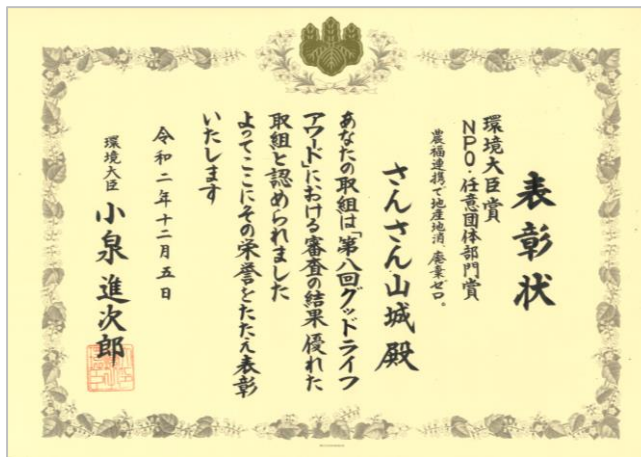 表彰状
環境大臣賞
NPO・任意団体部門賞
農福連携で地産地消、廃棄ゼロ。
さんさん山城 殿
あなたの取組は「第八回グッドライフ
アワード」における審査の結果 優れた
取組と認められました
よってここにその栄誉をたたえ表彰
いたします
令和二年十二月五日
環境大臣 小泉進次郎